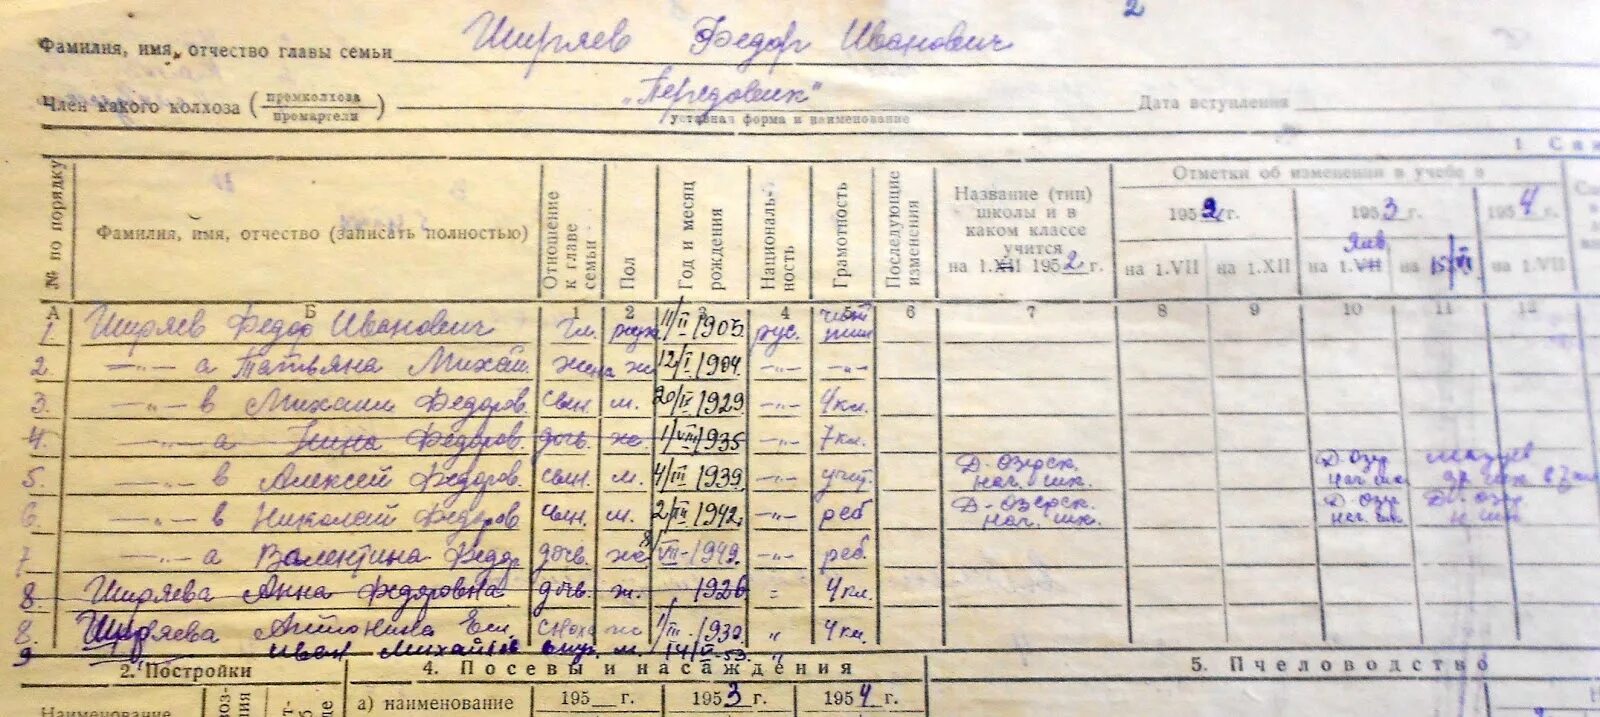 2
Фамилия, имя, отчество главы семьи Ширяев Федор Иванович
Член какого колхоза (промколхоза промартели) „Передовик“ Дата вступления
уставная форма и наименование
1. Спи
№ по порядку Фамилия, имя, отчество (записать полностью) Отношение к главе семьи Пол Год и месяц рождения Национальность Грамотность Последующие изменения Название (тип) школы и в каком классе учится на 1.XII 1952 г. Отметки об изменении в учебе в
1952 г. 1953 г. 1954 г.
на 1.VII на 1.XII на 1.VII янв на 15 на 1.VII
А Б 1 2 3 4 5 6 7 8 9 10 11 12
1. Ширяев Федор Иванович гл. муж. 11/II 1905. рус. чит пиш
2. —„— а Татьяна Михай. жена ж. 12/I 1904 —„— —„—
3. —„— в Михаил Федоров. сын м. 20/IX 1929 —„— 4 кл.
4. —„— а Нина Федоров. дочь ж. 1/VIII 1935 —„— 7 кл.
5. —„— в Алексей Федоров. сын. м. 4/III 1939 —„— учит. Д-озерск. нач. шк. Д-озер нач шк
6. —„— в Николай Федоров сын. м. 2/III 1942 —„— реб Д-озерск. нач. шк. Д-озр нач шк Д-озр н шк
7 —„— а Валентина Федор дочь. ж VIII-1949. —„— реб.
8. Ширяева Анна Федоровна дочь. ж. 1926 „ 4 кл.
8. Ширяева Антонина Ем. сноха ж 1/III-1930 „ 4 кл.
9 Иван Михайлов внук. м. 14/V-53. „
2. Постройки 4. Посевы и насаждения 5. Пчеловодство
Наименование а) наименование 195 г. 1953 г. 1954 г.